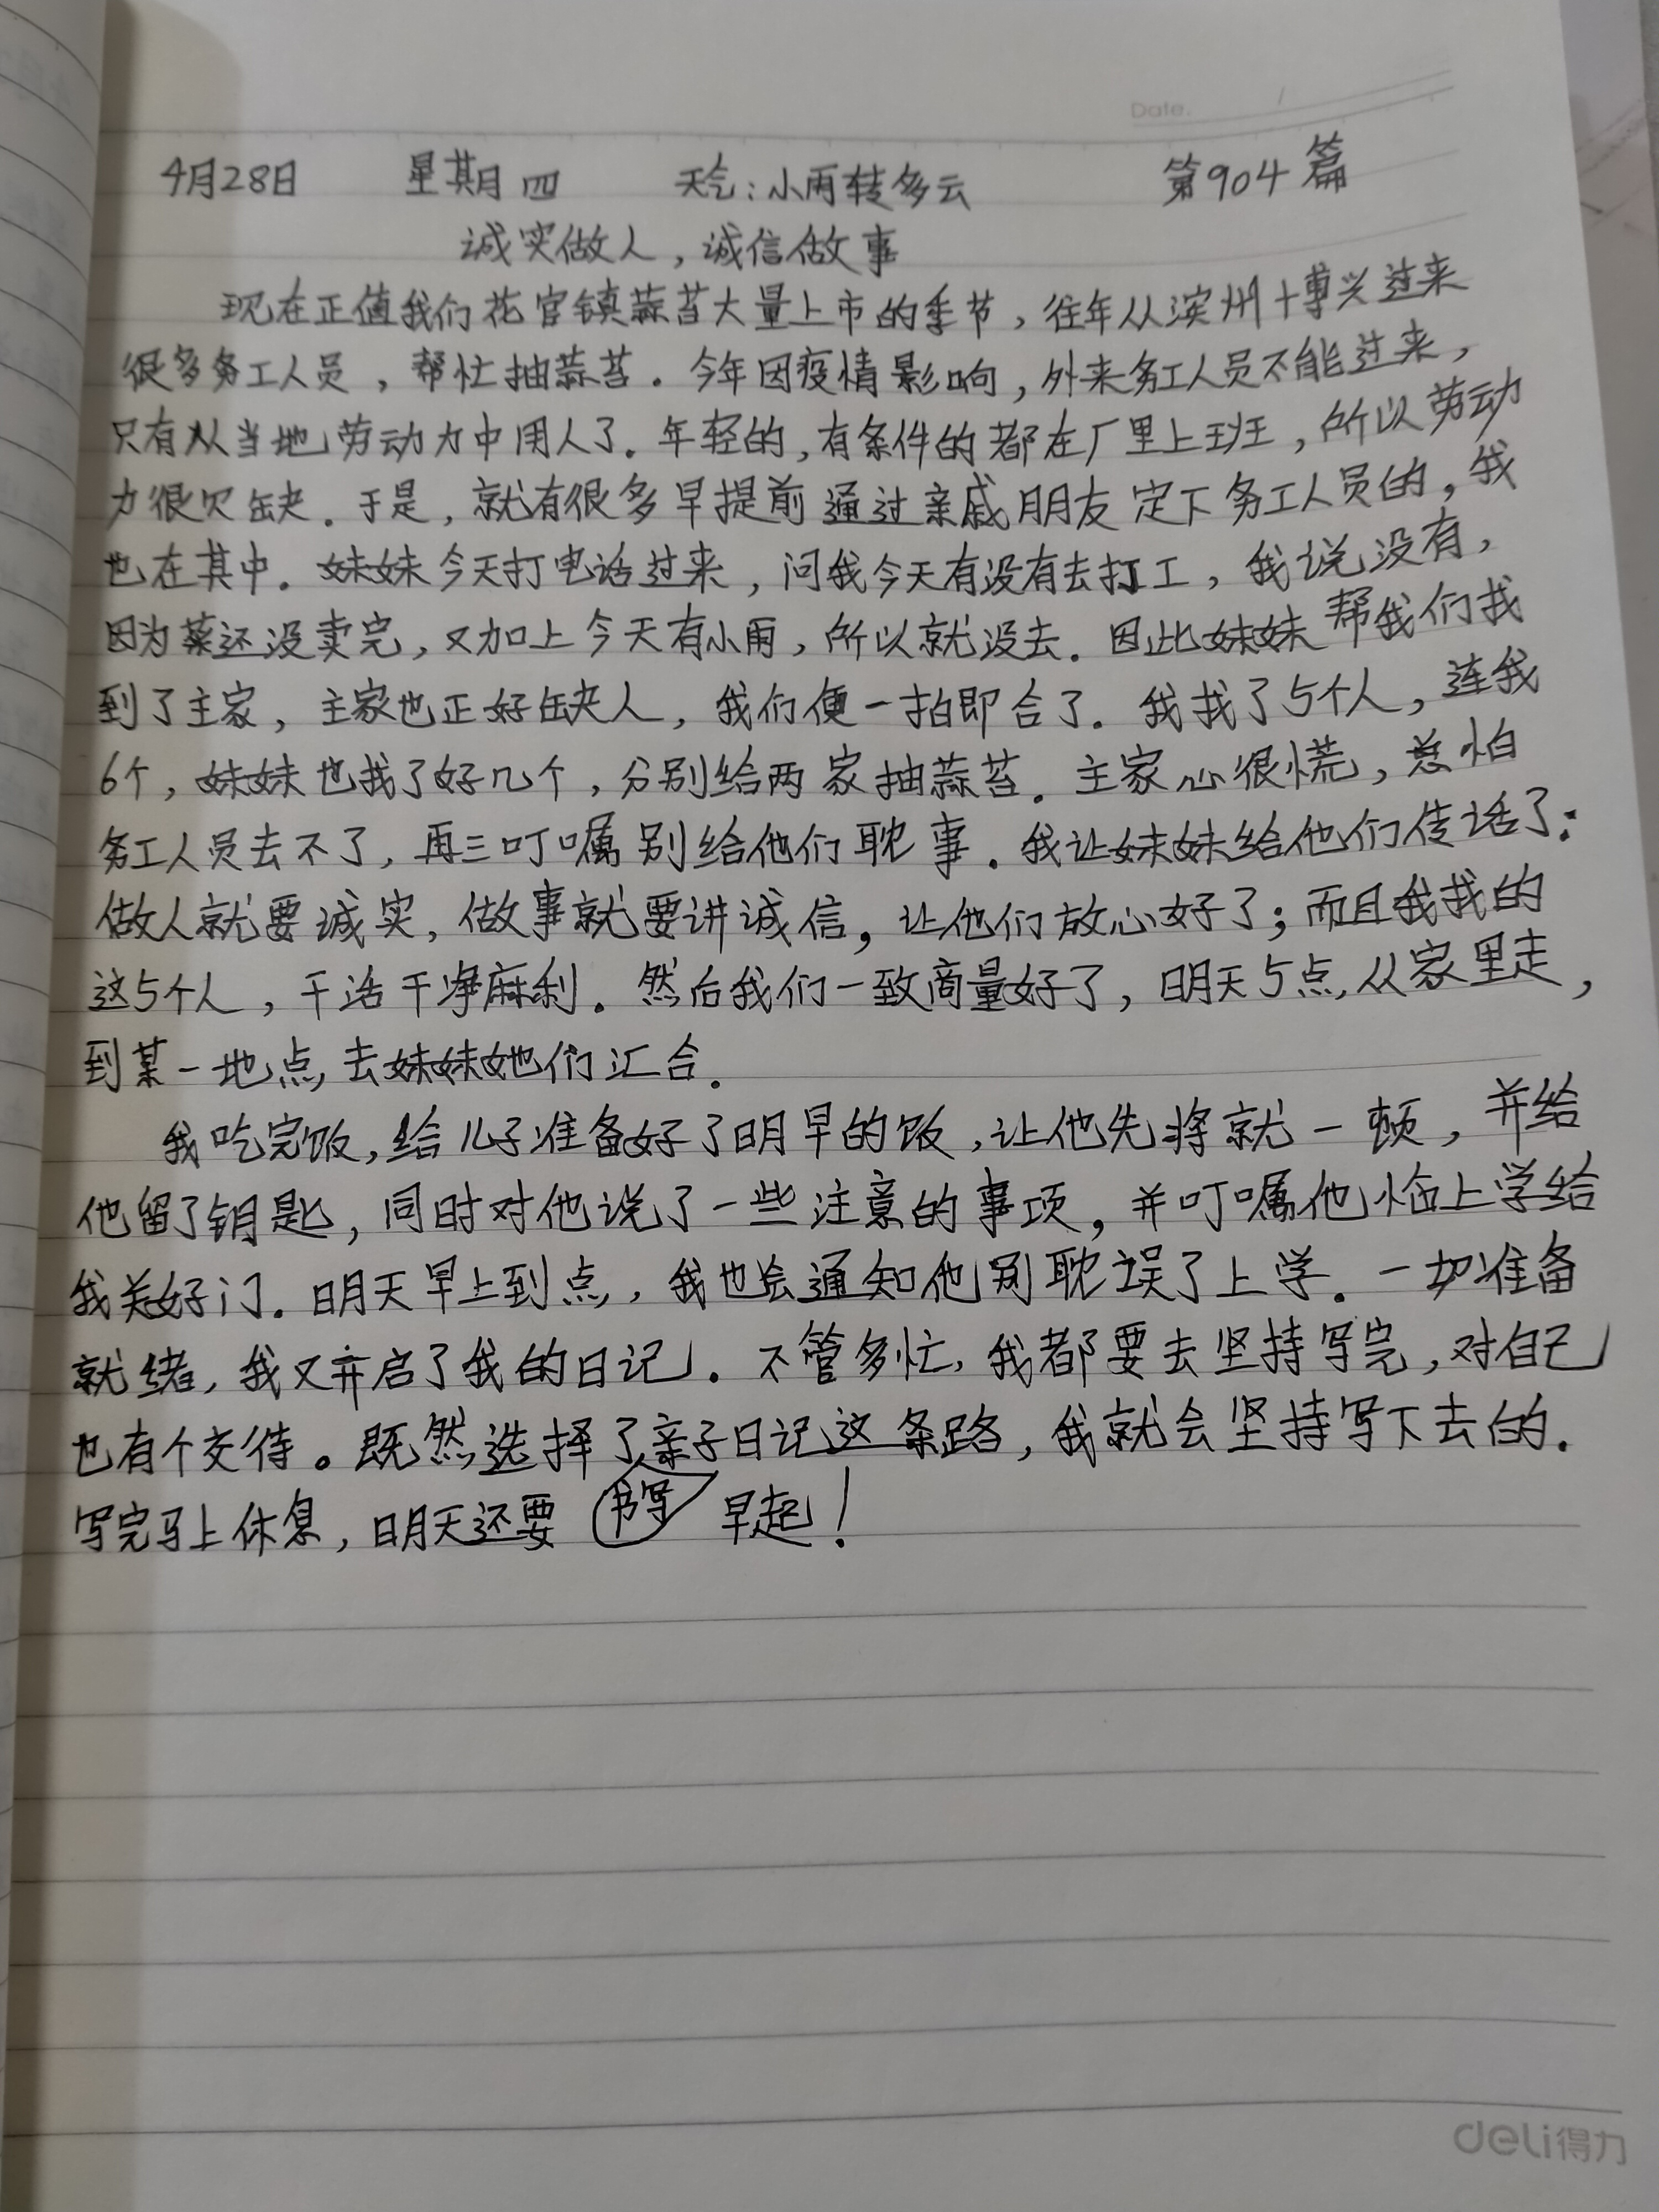 Date. /
4月28日 星期四 天气:小雨转多云 第904篇
诚实做人,诚信做事
现在正值我们花官镇蒜苔大量上市的季节,往年从滨州博兴过来
很多务工人员,帮忙抽蒜苔.今年因疫情影响,外来务工人员不能过来,
只有从当地劳动力中用人了.年轻的,有条件的都在厂里上班,所以劳动
力很欠缺.于是,就有很多早提前通过亲戚朋友定下务工人员的,我
也在其中.妹妹今天打电话过来,问我今天有没有去打工,我说没有,
因为菜还没卖完,又加上今天有小雨,所以就没去.因此妹妹帮我们找
到了主家,主家也正好缺人,我们便一拍即合了.我找了5个人,连我
6个,妹妹也找了好几个,分别给两家抽蒜苔.主家心很慌,总怕
务工人员去不了,再三叮嘱别给他们耽事.我让妹妹给他们传话了:
做人就要诚实,做事就要讲诚信,让他们放心好了;而且我找的
这5个人,干活干净麻利.然后我们一致商量好了,明天5点,从家里走,
到某一地点,去妹妹她们汇合.
我吃完饭,给儿子准备好了明早的饭,让他先将就一顿,并给
他留了钥匙,同时对他说了一些注意的事项,并叮嘱他临上学给
我关好门.明天早上到点,我也会通知他别耽误了上学.一切准备
就绪,我又开启了我的日记.不管多忙,我都要去坚持写完,对自己
也有个交待。既然选择了亲子日记这条路,我就会坚持写下去的.
写完马上休息,明天还要 早起!
deli得力